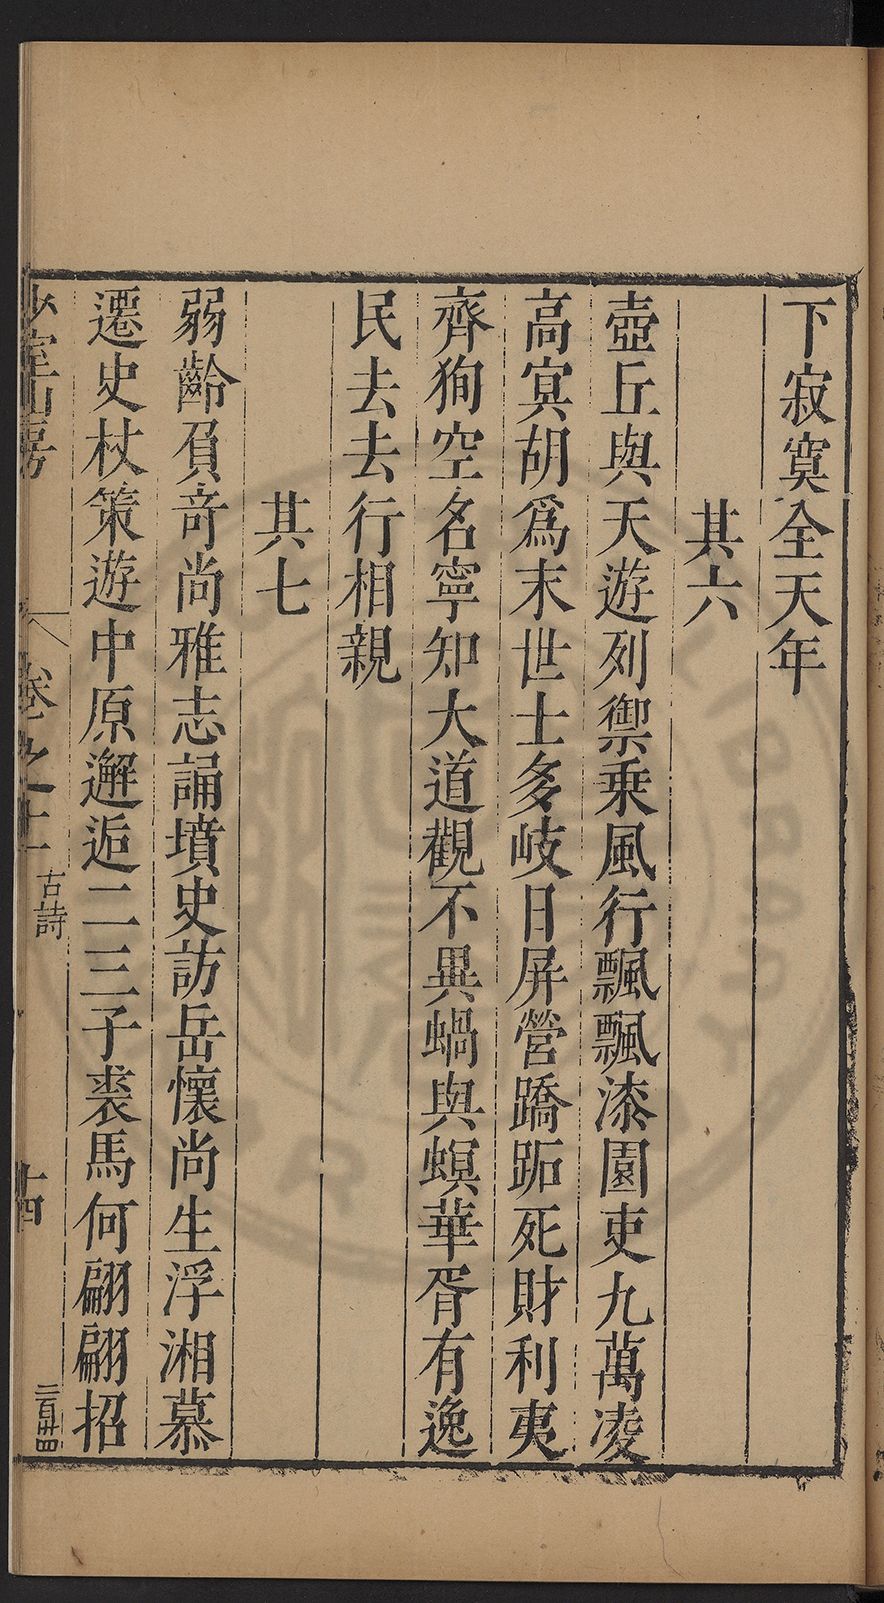 下寂寞全天年
其六
壺丘與天遊列禦乘風行飄飄漆園吏九萬凌
高冥胡爲末世士多岐日屏營蹻跖死財利夷
齊狥空名寧知大道觀不異蝸與螟華胥有逸
民去去行相親
其七
弱齡負奇尚雅志誦墳史訪岳懷尚生浮湘慕
遷史杖策遊中原邂逅二三子裘馬何翩翩招
少室山房
卷之十
古詩
十四
二百廿四